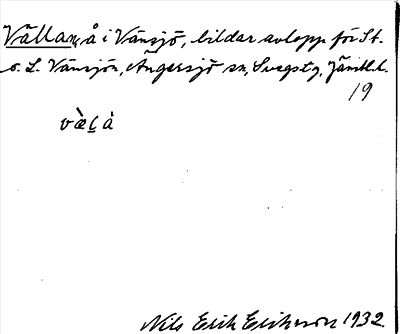 Vällan, å i Vänsjö, bildar avlopp för St.
o. L. Vänsjön, Ängersjö sn, Svegs tg, Jämtl. l.
19
væ̀l̠å
Nils Erik Eriksson 1932.